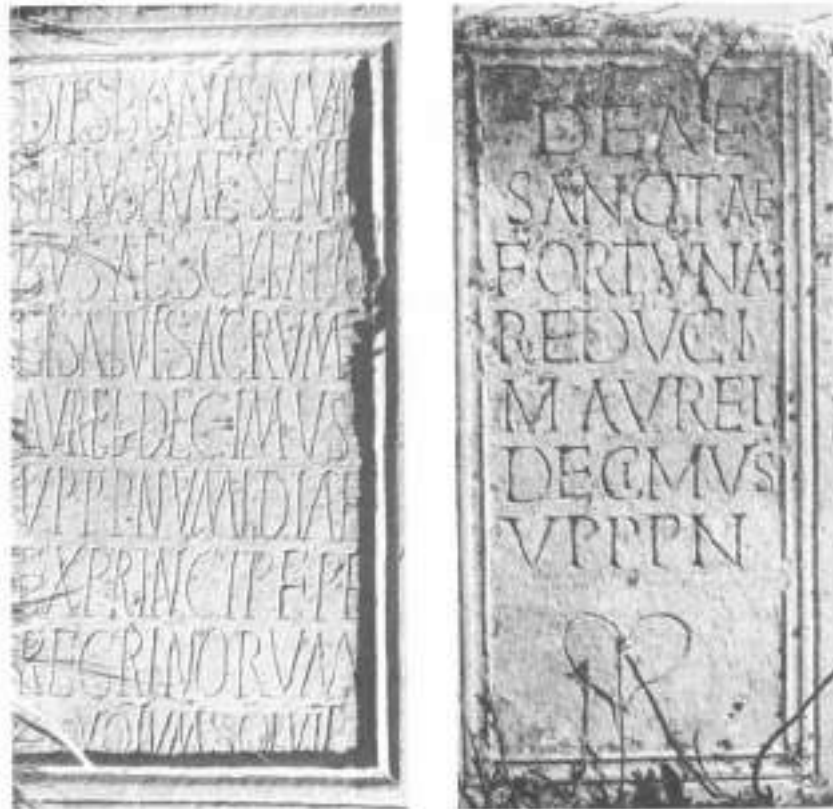 DIIS·BONIS·NVMI
NIBVS·PRAESENTI
BVS·AESCVLAPIO
ET SALVTI SACRVM M
AVREL·DECIMVS
VPPP·NVMIDIAE
EX PRINCIPE PE
REGRINORVM
VOTVM SOLVIT
DEAE
SANCTAE
FORTVNAE
REDVCI
M AVREL
DECIMVS
VPPPN